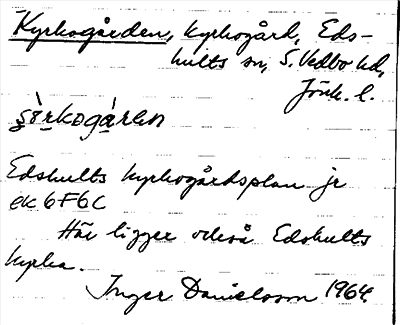 Kyrkogården, kyrkogård, Eds-
hults sn, S. Vedbo hd,
Jönk. l.
Edshults kyrkogårdsplan jr
ek 6F6C
Här ligger också Edshults
kyrka.
Inger Danielsson 1964